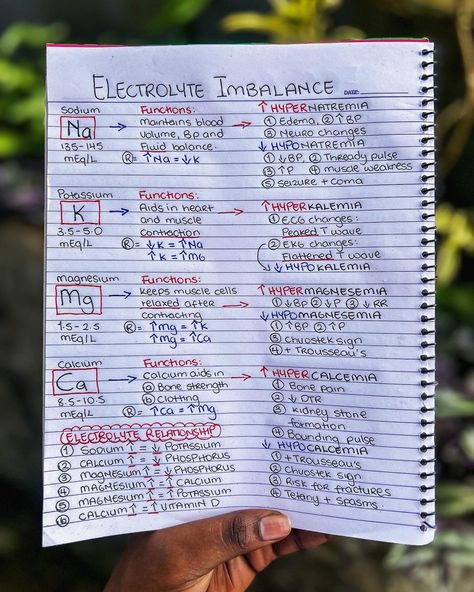 ELECTROLYTE IMBALANCE
DATE:
Sodium
Na
135-145
mEq/L
Functions:
→ maintains blood
volume, BP and
Fluid balance.
R= ↑Na = ↓K
→ ↑HYPERNATREMIA
① Edema, ② ↑BP
③ Neuro changes
↓HYPONATREMIA
① ↓BP, ② Thready pulse
③ ↑P ④ muscle weakness
⑤ seizure + coma
Potassium
K
3.5-5.0
mEq/L
Functions:
→ Aids in heart
and muscle
contraction
R= ↓K = ↑Na
↑K = ↑MG
→ ↑HYPERKALEMIA
① ECG changes:
Peaked T wave
② EKG changes:
Flattened T wave
↓HYPOKALEMIA
magnesium
Mg
1.5-2.5
mEq/L
Functions:
→ keeps muscle cells
relaxed after
contracting
R= ↑mg = ↑K
↑mg = ↑Ca
→ ↑HYPERMAGNESEMIA
① ↓BP ② ↓P ③ ↓RR
↓HYPOMAGNESEMIA
① ↑BP ② ↑P
③ Chvostek sign
④ + Trousseau's
Calcium
Ca
8.5-10.5
mEq/L
Functions:
→ Calcium aids in
ⓐ Bone strength
ⓑ Clotting
R= ↑Ca = ↑Mg
→ ↑HYPERCALCEMIA
① Bone pain
② ↓DTR
③ Kidney stone
formation
④ Bounding pulse
↓HYPOCALCEMIA
① + Trousseau's
② Chvostek sign
③ Risk for fractures
④ Tetany + spasms.
ELECTROLYTE RELATIONSHIP
① SODIUM ↑ = ↓ POTASSIUM
② CALCIUM ↑ = ↓ PHOSPHORUS
③ MAGNESIUM ↑ = ↓ PHOSPHORUS
④ MAGNESIUM ↑ = ↑ CALCIUM
⑤ MAGNESIUM ↑ = ↑ POTASSIUM
⑥ CALCIUM ↑ = ↑ VITAMIN D